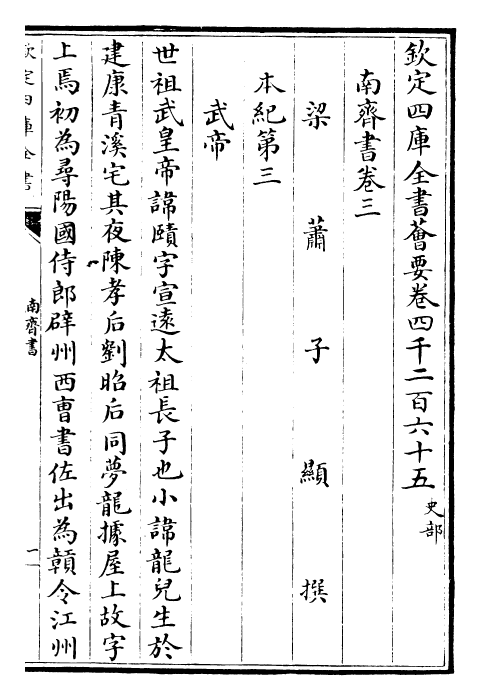 欽定四庫全書薈要卷四千二百六十五 史部
南齊書卷三
梁 蕭 子 顯 撰
本紀第三
武帝
世祖武皇帝諱賾字宣遠太祖長子也小諱龍兒生於
建康青溪宅其夜陳孝后劉昭后同夢龍據屋上故字
上焉初為尋陽國侍郎辟州西曹書佐出為贛令江州
欽定四庫全書
南齊書
一